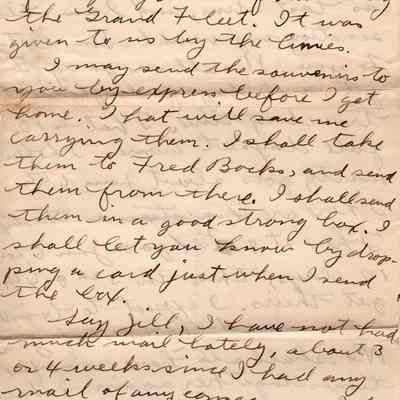 the Grand Fleet. It was
given to us by the limies.
I may send the souvenirs to
you by express before I get
home. That will save me
carrying them. I shall take
them to Fred Bocks, and send
them from there. I shall send
them in a good strong box. I
shall let you know by drop-
ping a card just when I send
the box.
Say Jill, I have not had
much mail lately, about 3
or 4 weeks since I had any
mail of any